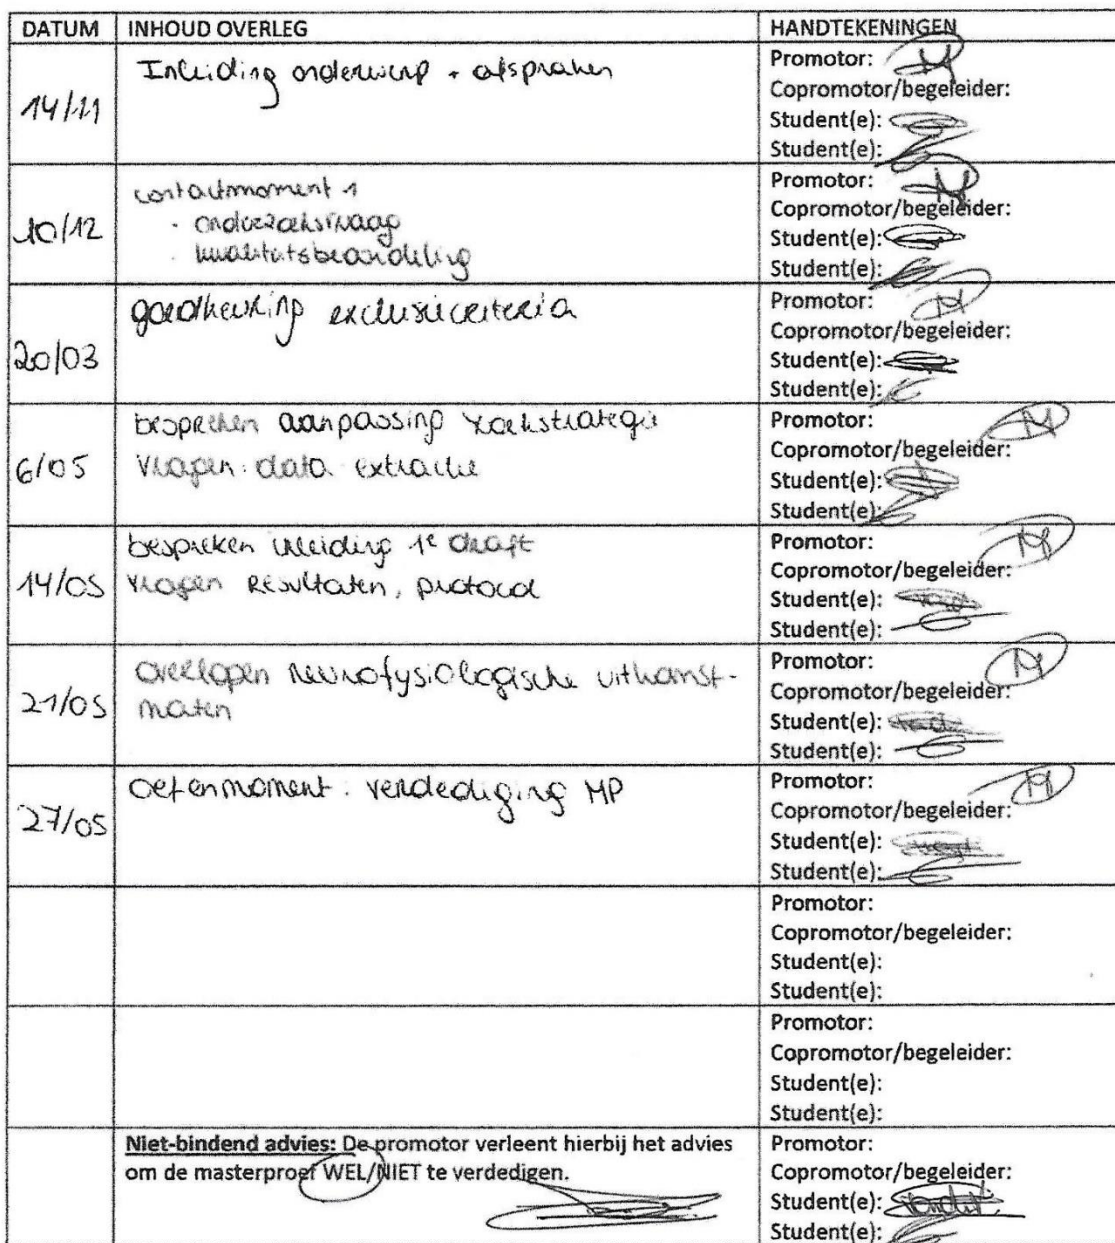 DATUM INHOUD OVERLEG HANDTEKENINGEN
14/11
Inleiding onderwerp + afspraken
Promotor:
Copromotor/begeleider:
Student(e):
Student(e):
10/12
contactmoment 1
- onderzoeksvraag
- kwaliteitsbeoordeling
Promotor:
Copromotor/begeleider:
Student(e):
Student(e):
20/03
goedkeuring exclusiecriteria
Promotor:
Copromotor/begeleider:
Student(e):
Student(e):
6/05
bespreken aanpassing zoekstrategie
vragen: data extractie
Promotor:
Copromotor/begeleider:
Student(e):
Student(e):
14/05
bespreken inleiding 1e draft
vragen resultaten, protocol
Promotor:
Copromotor/begeleider:
Student(e):
Student(e):
21/05
overlopen neurofysiologische uitkomst-
maten
Promotor:
Copromotor/begeleider:
Student(e):
Student(e):
27/05
oefenmoment: verdediging MP
Promotor:
Copromotor/begeleider:
Student(e):
Student(e):
Promotor:
Copromotor/begeleider:
Student(e):
Student(e):
Promotor:
Copromotor/begeleider:
Student(e):
Student(e):
Niet-bindend advies: De promotor verleent hierbij het advies
om de masterproef WEL/NIET te verdedigen.
Promotor:
Copromotor/begeleider:
Student(e):
Student(e):